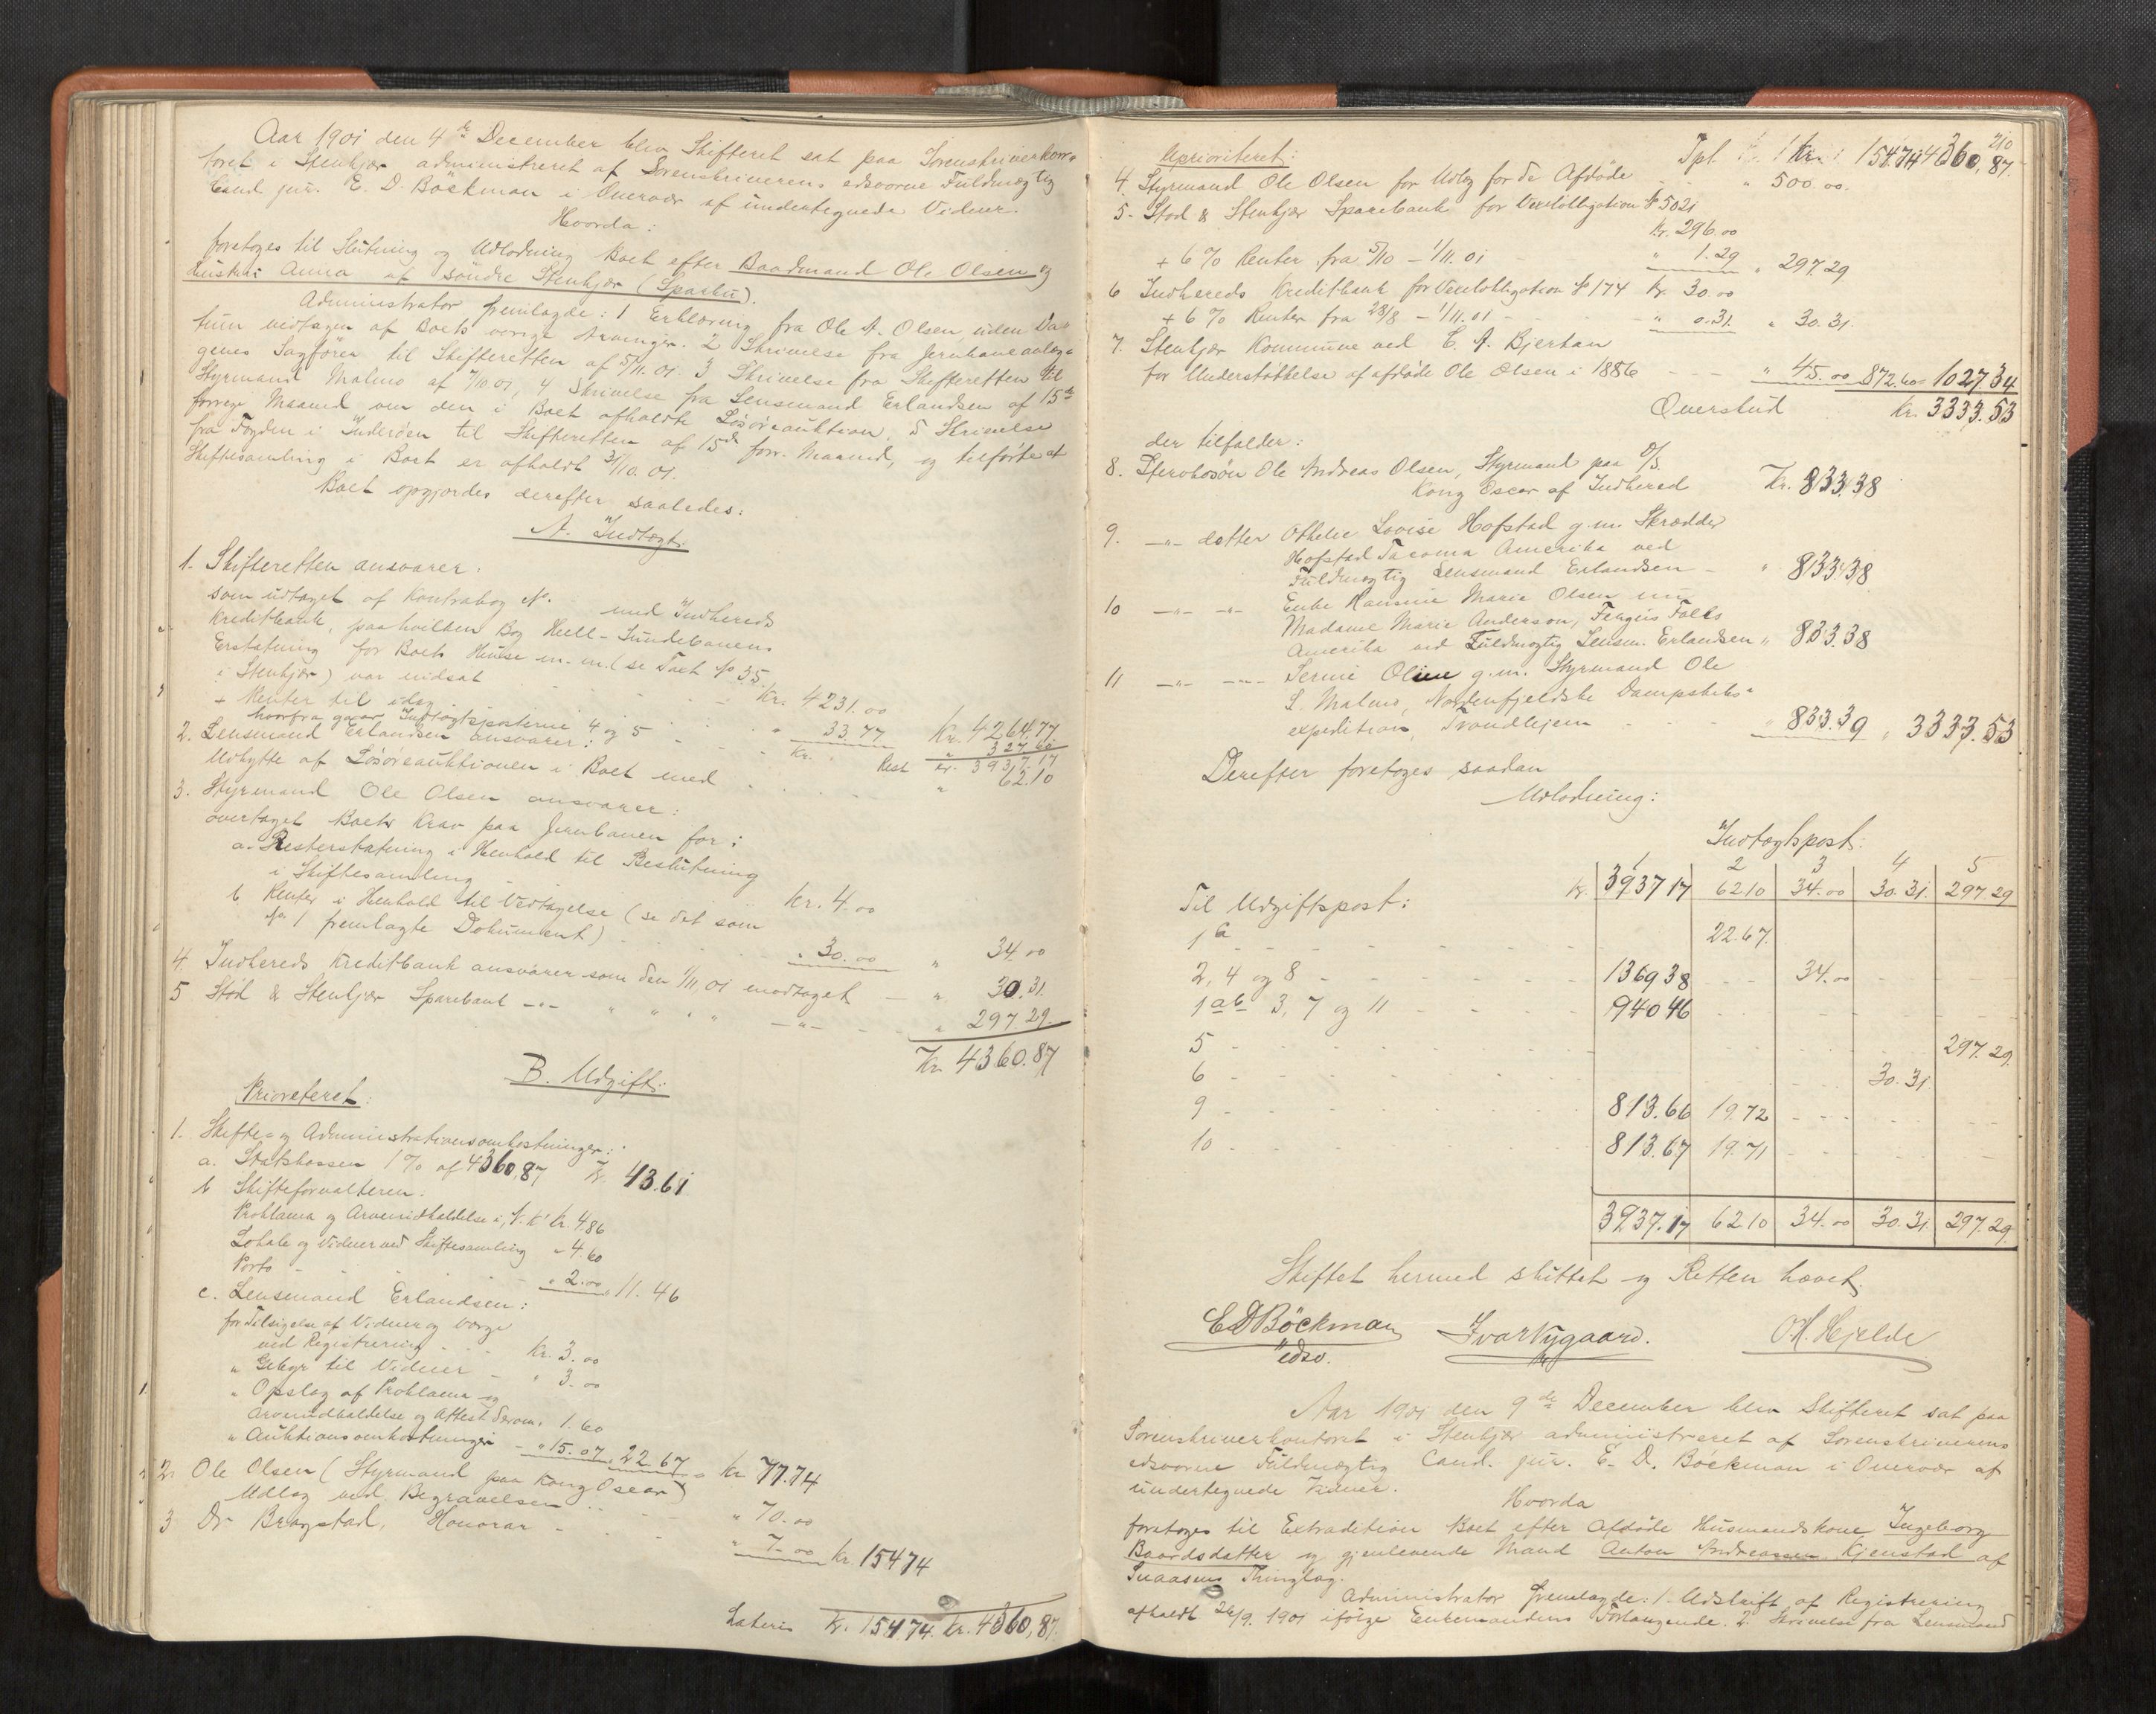 Aar 1901 den 4de December blev Skifteret sat paa Sorenskriverkon-
toret i Stenkjær administreret af Sorenskriverens edsvorne Fuldmægtig
Cand jur. E. D. Böckman i Overvær af undertegnede Vidner.
Hvorda:
foretoges til Slutning og Udlodning Boet efter Baadmand Ole Olsen og
Hustru Anna af söndre Stenkjær (Sparbu).
Administrator fremlagde: 1 Erklæring fra Ole A. Olsen, uden Da-
tum vedtagen af Boets övrige Arvinger. 2 Skrivelse fra Jernbaneanlæg-
genes Sagförer til Skifteretten af 5/11.01. 3 Skrivelse fra Skifteretten til
Styrmand Malmo af 7/10.01, 4 Skrivelse fra Lensmand Erlandsen af 15de
forrige Maaned om den i Boet afholdte Lösöreauktion, 5 Skrivelse
fra Fogden i Inderöen til Skifteretten af 15de forr. Maaned, og tilförte at
Skiftesamling i Boet er afholdt 31/10.01.
Boet opgjordes derefter saaledes:
A. Indtægt:
1. Skifteretten ansvarer:
som udtaget af Kontrabog No. med Indhereds
Kreditbank, paa hvilken Bog Hell-Sundebanens
Erstatning for Boets Huse m.m. (se Taxt No 35
i Stenkjær) var indsat - Kr. 4231.00
+ Renter til idag " 33.77 Kr. 4264.77
hvorfra gaar Indtægtsposterne 4 og 5 - Kr. 327.60
Rest Kr. 3937.17
2. Lensmand Erlandsen ansvarer:
Udbytte af Lösöreauktionen i Boet med " 62.10
3. Styrmand Ole Olsen ansvarer:
overtaget Boets Krav paa Jernbanen for:
a. Resterstatning i Henhold til Beslutning
i Skiftesamling Kr. 4.00
b Renter i Henhold til Vedtagelse (se det som
No 1 fremlagte Dokument) " 30.00 " 34.00
4. Indhereds Kreditbank ansvarer som den 1/11.01 modtaget - " 30.31
5 Stod & Stenkjær Sparebank -"- " " " " -"- - " 297.29
Kr. 4360.87
B. Udgift:
Prioriteret:
1. Skifte- og Administrationsomkostninger:
a. Statskassen 1 % af 4360.87 Kr. 43.61
b Skifteforvalteren.
Proklama og Arveindkaldelse i N. K' Kr. 4.86
Lokale og Vidner ved Skiftesamling " 4.60
Porto - " 2.00 " 11.46
c. Lensmand Erlandsen:
for Tilsigelse af Vidner og Værge
ved Registrering - Kr. 3.00
" Gebyr til Vidner - " 3.00
" Opslag af Proklama og
Arveindkaldelse og Attest derom. 1.60
" Auktionsomkostninger - " 15.07 " 22.67 = Kr 77.74
2. Ole Olsen (Styrmand paa Kong Oscar)
Udlæg ved Begravelsen - " 70.00
3 Dr Bragstad, Honorar - " 7.00 Kr. 154 74
Lateris Kr. 154 74. Kr. 4360,87.
210
Uprioriteret: Tpt. Kr. 154.74 4360,87.
4. Styrmand Ole Olsen for Udlæg for de Afdöde " 500.00.
5. Stod & Stenkjær Sparebank for Vexelobligation No 5021
Kr. 296.00
+ 6 % Renter fra 5/10 - 1/11.01 - " 1.29 " 297 29
6 Indhereds Kreditbank for Vexelobligation No 174 Kr. 30.00
+ 6 % Renter fra 28/8 - 1/11.01 - " 0.31 " 30.31.
7. Stenkjær Kommune ved E. A. Bjerkan
for Understöttelse af afdöde Ole Olsen i 1886 - - " 45.00 872.60 = 1027.34
Overskud Kr. 3333.53
der tilfalder:
8. Stervbosön Ole Andreas Olsen, Styrmand paa D/S.
Kong Oscar af Indhered Kr. 833.38
9. -"- datter Othelie Lovise Hofstad g.m. Skrædder
Hofstad Tacoma Amerika ved
Fuldmægtig Lensmand Erlandsen - " 833.38
10 -"- -"- Enke Hansine Marie Olsen nu
Madame Marie Anderson, Fergus Falls
Amerika ved Fuldmægtig Lensm. Erlandsen " 833.38
11 -"- -"- Serine Oline g.m. Styrmand Ole
L. Malmo, Nordenfjeldske Dampskibs-
expedition, Trondhjem " 833.39 " 3333.53
Derefter foretoges saadan
Udlodning:
Indtægtspost:
1 2 3 4 5
Til Udgiftspost: Kr. 3937 17 62 10 34.00 30.31. 297.29
1 c - 22.67.
2, 4 og 8 - 1369 38 34.00
1 a b 3, 7 og 11 - 940 46
5 - 297.29.
6 - 30.31.
9 - 813.66 19.72
10 - 813.67 19.71
3937.17 62 10 34.00 30.31 297.29.
Skiftet hermed sluttet og Retten hævet.
E D Böckman Ivar Nygaard. O. A. Hjelde
edsv.
Aar 1901 den 9de December blev Skifteret sat paa
Sorenskriverkontoret i Stenkjær administreret af Sorenskriverens
edsvorne Fuldmægtig Cand. jur. E. D. Böckman i Overvær af
undertegnede Vidner.
Hvorda
foretoges til Extradition Boet efter afdöde Husmandskone Ingeborg
Baardsdatter og gjenlevende Mand Anton Andreassen Kjenstad af
Snaasens Thinglag.
Administrator fremlagde: 1. Udskrift af Registrering
afholdt 26/9. 1901 ifölge Enkemandens Forlangende. 2. Skrivelse fra Lensmand